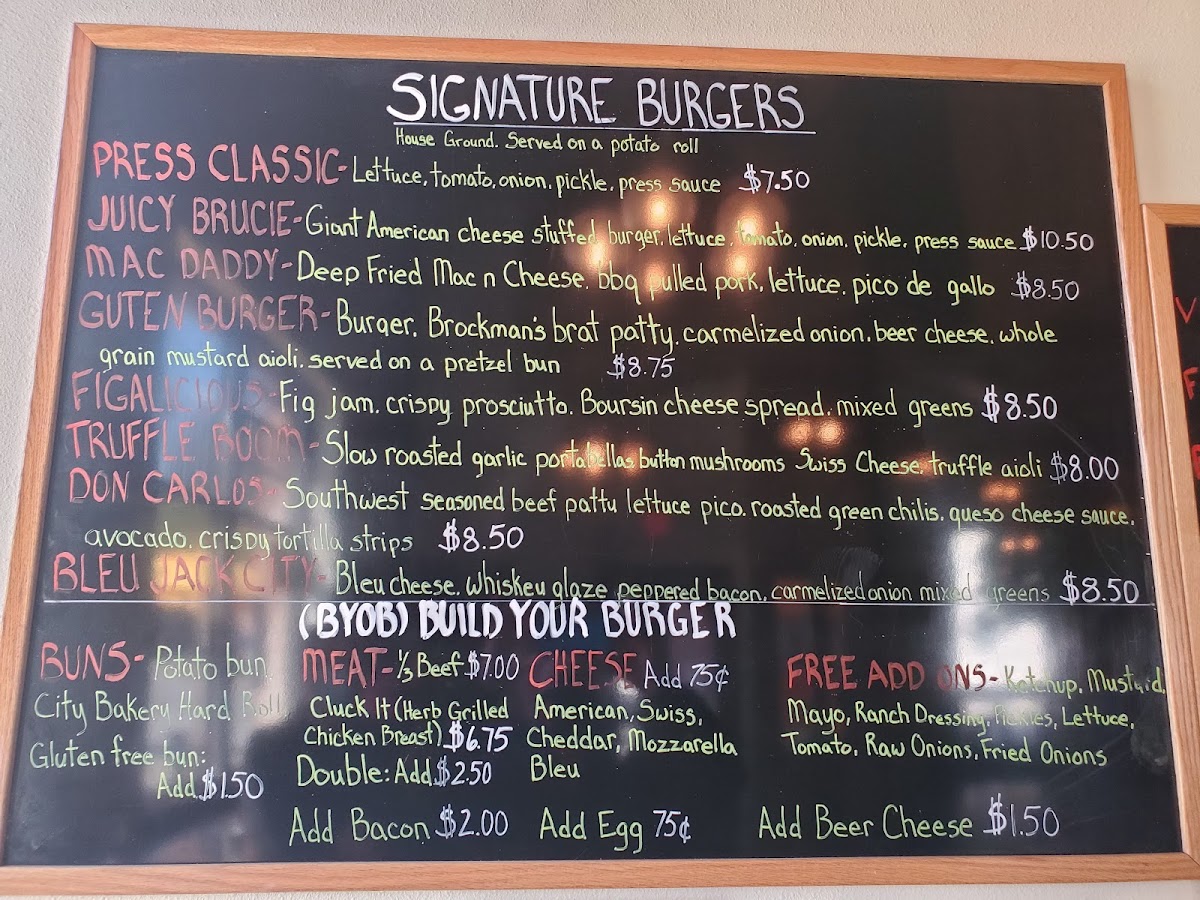 SIGNATURE BURGERS
House Ground. Served on a potato roll
PRESS CLASSIC- Lettuce, tomato, onion, pickle, press sauce $7.50
JUICY BRUCIE- Giant American cheese stuffed burger, lettuce, tomato, onion, pickle, press sauce $10.50
MAC DADDY- Deep Fried Mac n Cheese, bbq pulled pork, lettuce, pico de gallo $8.50
GUTEN BURGER- Burger, Brockman's brat patty, carmelized onion, beer cheese, whole
grain mustard aioli, served on a pretzel bun $8.75
FIGALICIOUS- Fig jam, crispy prosciutto, Boursin cheese spread, mixed greens $8.50
TRUFFLE BOOM- Slow roasted garlic portabellas button mushrooms Swiss Cheese, truffle aioli $8.00
DON CARLOS- Southwest seasoned beef patty lettuce pico, roasted green chilis, queso cheese sauce,
avocado, crispy tortilla strips $8.50
BLEU JACK CITY- Bleu cheese, whiskey glaze peppered bacon, carmelized onion mixed greens $8.50
(BYOB) BUILD YOUR BURGER
BUNS- Potato bun,
City Bakery Hard Roll
Gluten free bun:
Add $1.50
MEAT- 1/3 Beef $7.00
Cluck It (Herb Grilled
Chicken Breast) $6.75
Double: Add $2.50
CHEESE Add 75¢
American, Swiss,
Cheddar, Mozzarella
Bleu
FREE ADD ONS- Ketchup, Mustard,
Mayo, Ranch Dressing, Pickles, Lettuce,
Tomato, Raw Onions, Fried Onions
Add Bacon $2.00 Add Egg 75¢ Add Beer Cheese $1.50
V
F